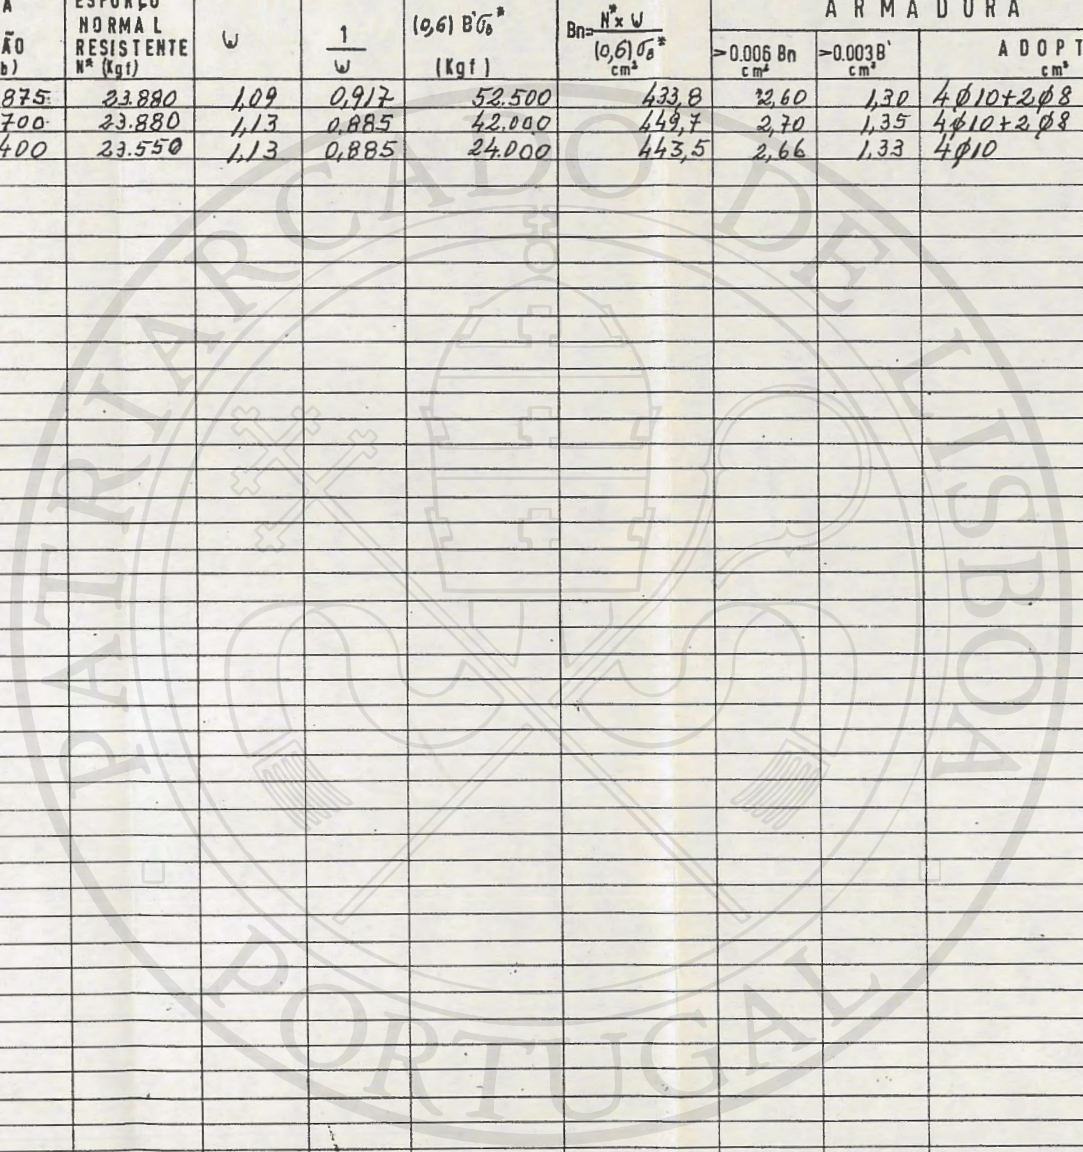 A ESFORÇO NORMAL RESISTENTE N* (Kgf) ω 1/ω (0,6) B'σb* (Kgf) Bn= N* x ω / (0,6) σb* cm² ARMADURA
ÃO b) >0.006 Bn cm² >0.003 B' cm² ADOPT cm²
875 23.880 1,09 0,917 52.500 433,8 2,60 1,30 4ø10+2ø8
700 23.880 1,13 0,885 42.000 449,7 2,70 1,35 4ø10+2ø8
400 23.550 1,13 0,885 24.000 443,5 2,66 1,33 4ø10
PATRIARCADO DE LISBOA
PORTUGAL